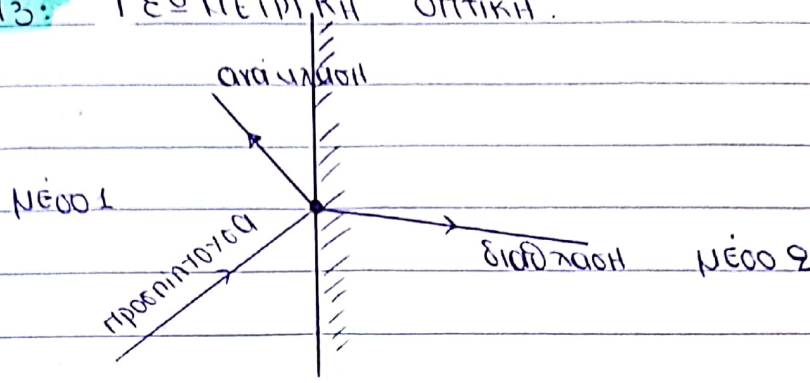 13: ΓΕΩΜΕΤΡΙΚΗ ΟΠΤΙΚΗ.
ανάκλαση
μέσο 1
προσπίπτουσα
διάθλαση μέσο 2